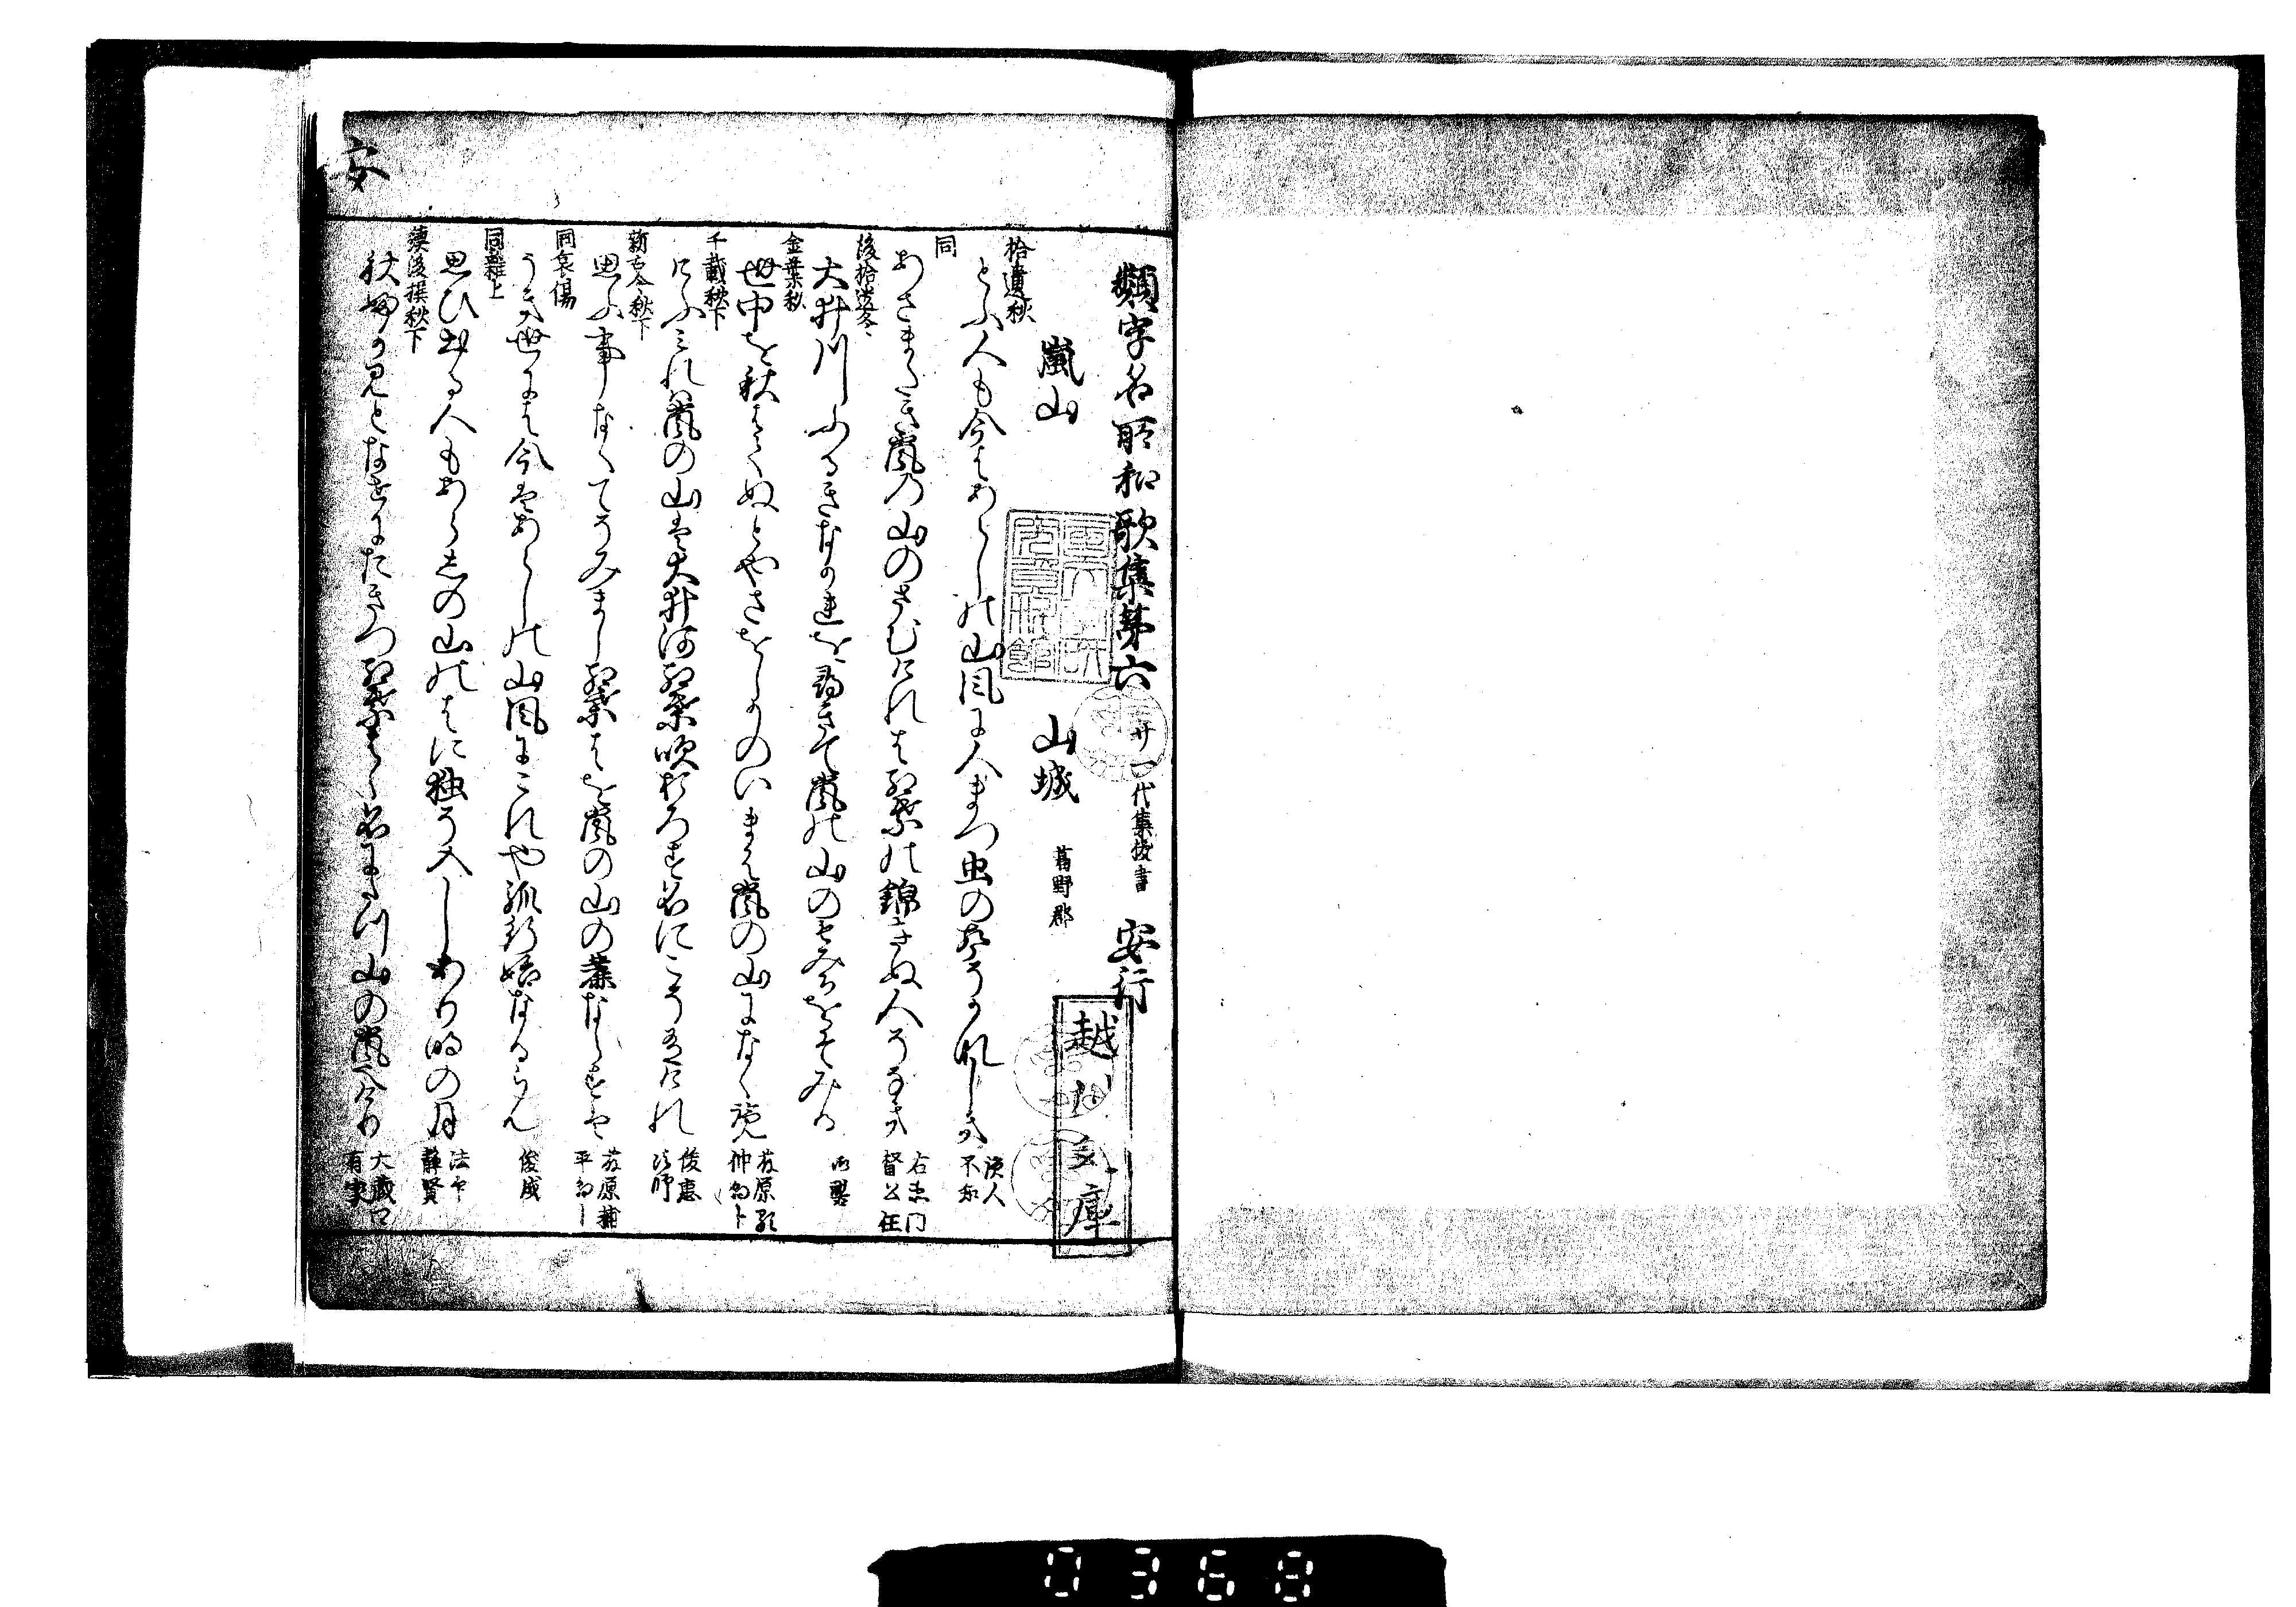 類字名所和歌集第六 廿一代集抜書 安行
嵐山 山城 葛野郡
拾遺秋
とふ人も今はあらしの山風に人まつ虫の声そかなしき 読人不知
同
あさまたき嵐の山のさむけれは紅葉の錦きぬ人そなき 右衛門督公任
後拾遺冬
大井川ふるきなかれを尋きて嵐の山のもみちをそみる 御製
金葉秋
世中を秋はてぬとやさをしかのいまは嵐の山になく覧 藤原顕仲朝卜
千載秋下
けふみれは嵐の山は大井河紅葉吹おろす名にこそ有けれ 俊恵法師
新古今秋下
思ふ事なくてそみまし紅葉はを嵐の山の麓ならすは 藤原輔平朝
同哀傷
うき世には今はあらしの山風にこれや馴行始なるらん 俊成
同雑上
思ひ出る人もあらしの山のはに独そ入しあり明の月 法印静賢
続後撰秋下
秋 かへ見となせにたきつ紅葉はゝ名にたつ山の嵐 り 大蔵口有家
安
越 文庫
0368